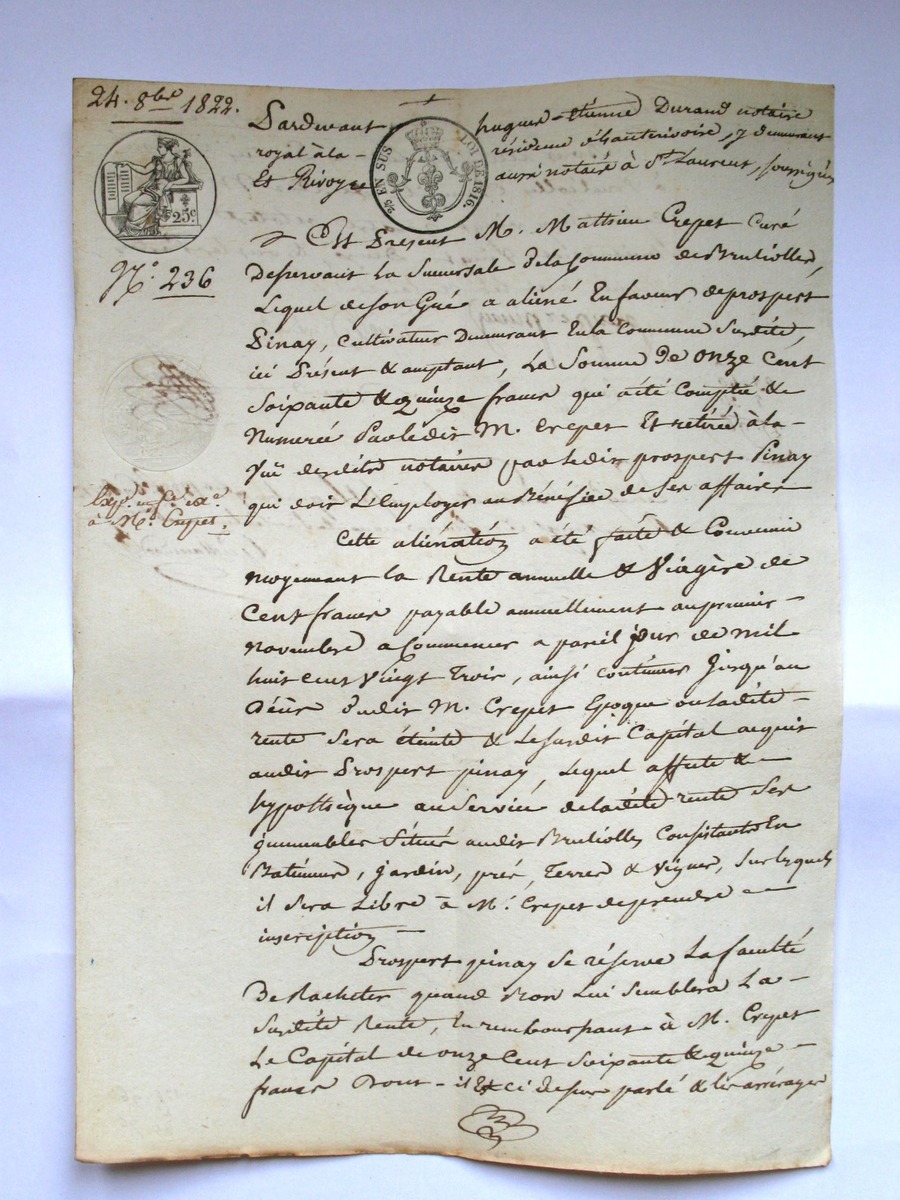 24. 8bre 1822.
25c.
N.° 236
Expé. en f.
à Mr. Crepet.
2/5 EN SUS LOI DE 1816.
Pardevant hugues-étienne Durand notaire
royal à la résidence d'hauterivoire, y demeurant
Et Rivoyre aussi notaire à St. Laurent, soussignés
Est Présent M. Mathieu Crepet Curé
Desservant la Succursale de la Commune de Brulliolles,
Lequel de son Gré a aliéné En faveur de prospert
Pinay, cultivateur Demeurant En la Commune Susdite,
ici Présent & acceptant, La Somme de onze Cent
Soixante & quinze francs qui a été Comptée &
Numerée Par ledit M. Crepet Et retirée à la
Vue desdits notaires par ledit prospert Pinay
qui doit L'Employer au Bénéfice de Ses affaires
Cette aliénation a été faite & Convenue
moyennant la Rente annuelle & Viagère de
Cent francs payable annuellement au premier
novembre a Commencer a pareil jour de mil
huit cent Vingt Trois, ainsi continuer Jusqu'au
Décès dudit M. Crepet Epoque ou ladite
rente Sera éteinte & Le susdit Capital acquit
audit Prospert pinay, Lequel affecte &
hypothèque au Service de ladite rente Ses
immeubles Situés audit Brulliolles Consistants En
Batiments, jardin, près, Terres & Vignes, Sur lesquels
il Sera Libre à Mr. Crepet de prendre
inscription
Prospert pinay Se réserve La faculté
De Racheter quand Bon Lui Semblera La
Susdite Rente, En remboursant à M. Crepet
Le Capital de onze Cent Soixante & quinze
francs Dont il Est ci dessus parlé & les arrérages